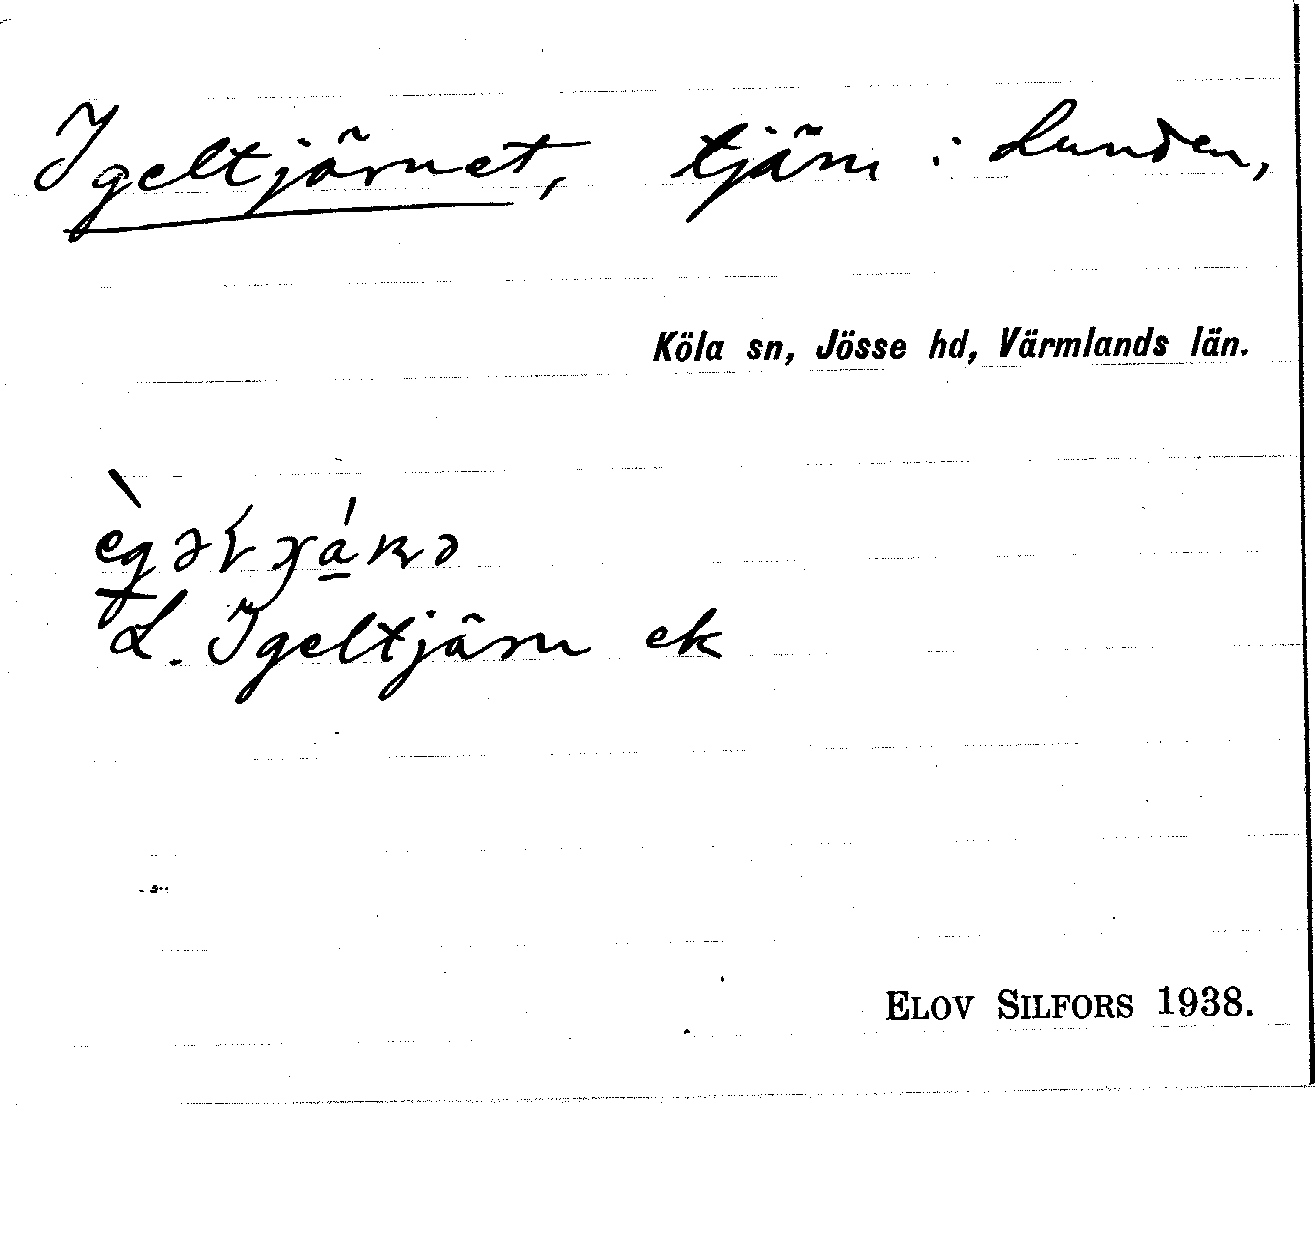 Igeltjärnet, tjärn i Lunden,
Köla sn, Jösse hd, Värmlands län.
L. Igeltjärn ek
ELOV SILFORS 1938.